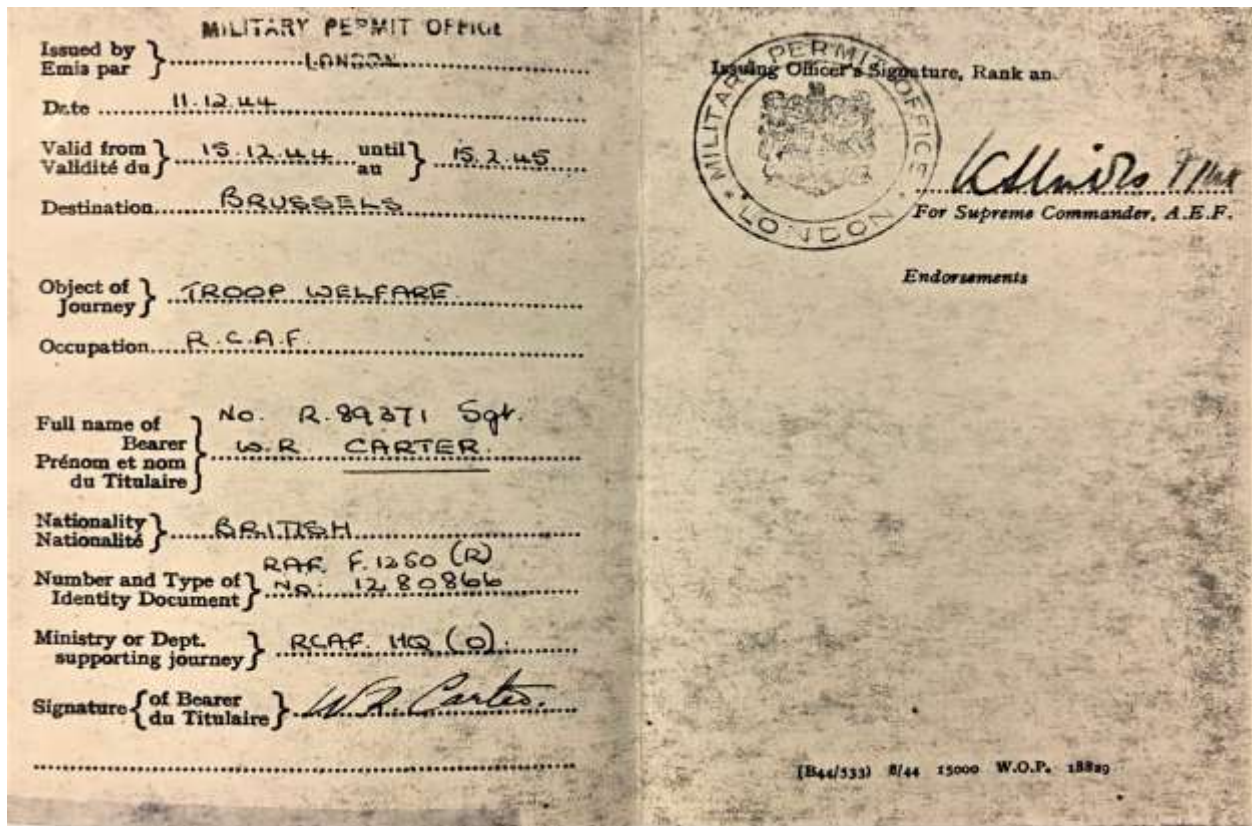 MILITARY PERMIT OFFICE
Issued by
Emis par
LONDON
Date 11.12.44
Valid from
Validité du
15.12.44
until
au
15.2.45
Destination BRUSSELS
Object of
Journey
TROOP WELFARE.
Occupation R.C.A.F.
Full name of
Bearer
Prénom et nom
du Titulaire
No. R.89371 Sgt.
W.R. CARTER.
Nationality
Nationalité
BRITISH
Number and Type of
Identity Document
RAF. F.1250 (R)
No: 1280866
Ministry or Dept.
supporting journey
RCAF. HQ (O).
Signature
of Bearer
du Titulaire
W.R. Carter.
MILITARY PERMIT OFFICE
LONDON
Issuing Officer's Signature, Rank an
For Supreme Commander, A.E.F.
Endorsements
(B44/533) 8/44 15000 W.O.P. 18829